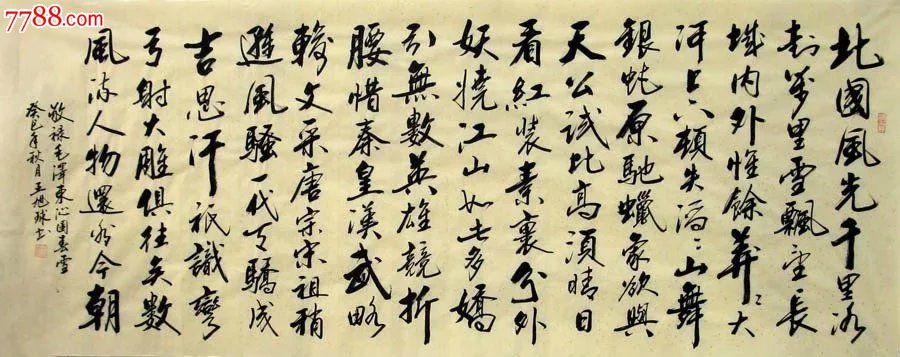 北國風光千里冰
封萬里雪飄望長
城内外惟餘莽〻大
河上下頓失滔〻山舞
銀蛇原馳蠟象欲與
天公試比高須晴日
看紅裝素裹分外
妖嬈江山如此多嬌
引無數英雄競折
腰惜秦皇漢武略
輸文采唐宗宋祖稍
遜風騷一代天驕成
吉思汗祇識彎
弓射大雕俱往矣數
風流人物還看今朝
敬錄毛澤東沁園春雪
癸巳年秋月王旭球書
7788.com